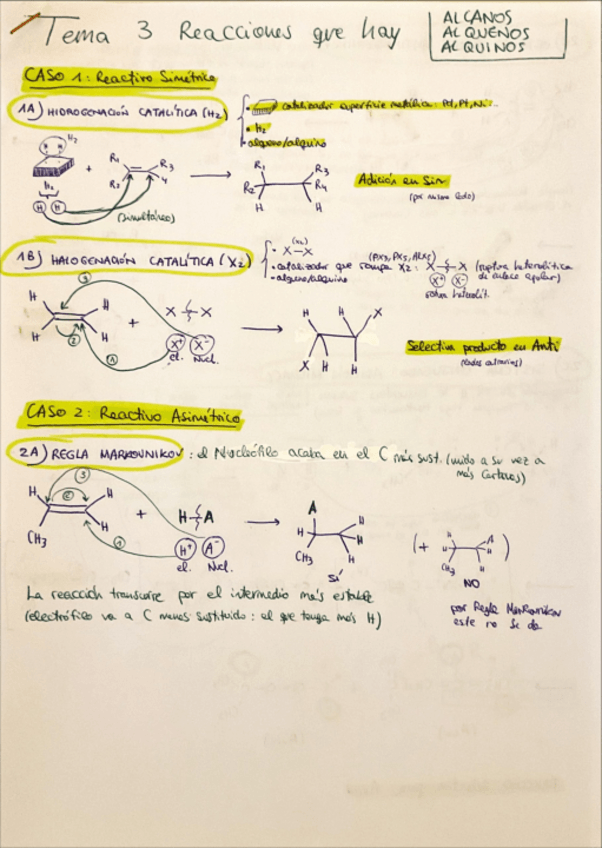 Tema 3 Reacciones que hay
ALCANOS
ALQUENOS
ALQUINOS
CASO 1: Reactivo Simétrico
1A) HIDROGENACIÓN CATALÍTICA (H2)
• catalizador superficie metálica: Pd, Pt, Ni...
• H2
• alqueno/alquino
H2
H2
H H
+
R1 R3
R2 4
(simultáneo)
R1 R3
R2 R4
H H
Adición en Sin
(por mismo lado)
1B) HALOGENACIÓN CATALÍTICA (X2)
• X-X (X2)
• catalizador que rompa X2: (PX3, PX5, AlX3) X-X (ruptura heterolítica
de enlace apolar)
• alqueno/alquino
X+ X-
heterolít.
3
H H
H H
2
1
+
X X
X+ X-
el. Nucl.
H X
X H H
Selectiva producto en Anti
(lados contrarios)
CASO 2: Reactivo Asimétrico
2A) REGLA MARKOVNIKOV: el Nucleófilo acaba en el C más sust. (unido a su vez a
más Carbonos)
3
H 2 H
CH3 H
1
+
H-A
H+ A-
el. Nucl.
A
H H
H
CH3 H
SÍ
(+
H A
H H
CH3 H
)
NO
La reacción transcurre por el intermedio más estable
(electrófilo va a C menos sustituido: el que tenga más H)
por Regla MARKOVNIKOV
este no se da